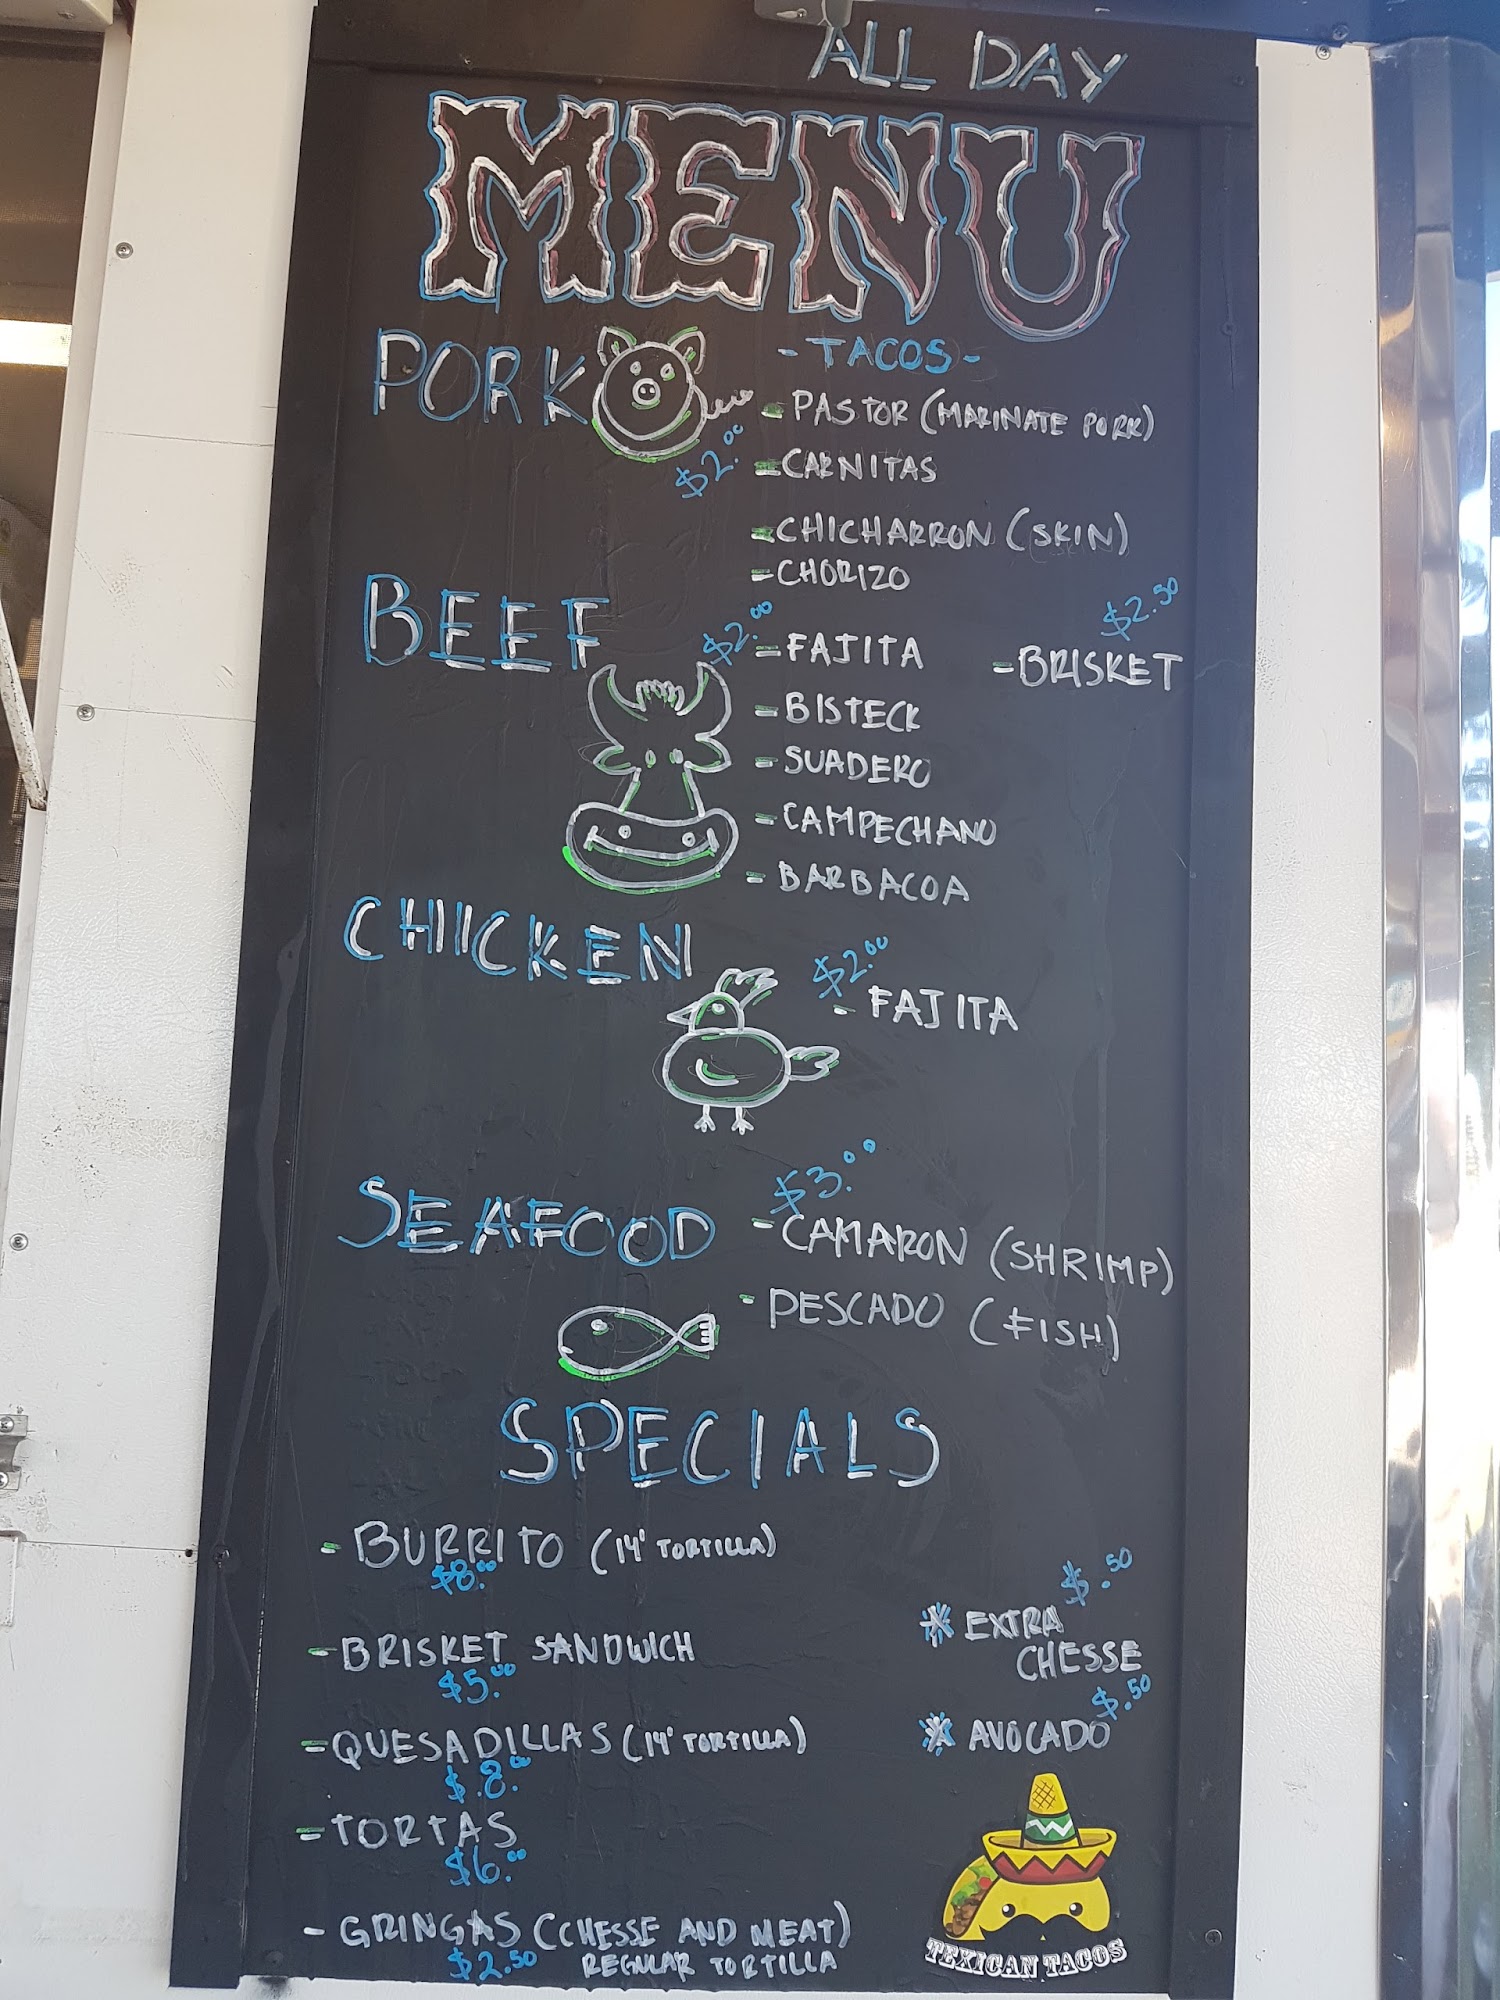 ALL DAY
MENU
PORK
- TACOS -
- PASTOR (MARINATE PORK)
$2.00
- CARNITAS
- CHICHARRON (SKIN)
- CHORIZO
BEEF
$2.00
- FAJITA
$2.50
- BRISKET
- BISTECK
- SUADERO
- CAMPECHANO
- BARBACOA
CHICKEN
$2.00
- FAJITA
SEAFOOD
$3.00
- CAMARON (SHRIMP)
- PESCADO (FISH)
SPECIALS
- BURRITO (14" TORTILLA)
$8.00
- BRISKET SANDWICH
$5.00
- QUESADILLAS (14" TORTILLA)
$.8.00
- TORTAS
$6.00
- GRINGAS (CHESSE AND MEAT)
$2.50 REGULAR TORTILLA
$.50
* EXTRA
CHESSE
$.50
* AVOCADO
TEXICAN TACOS